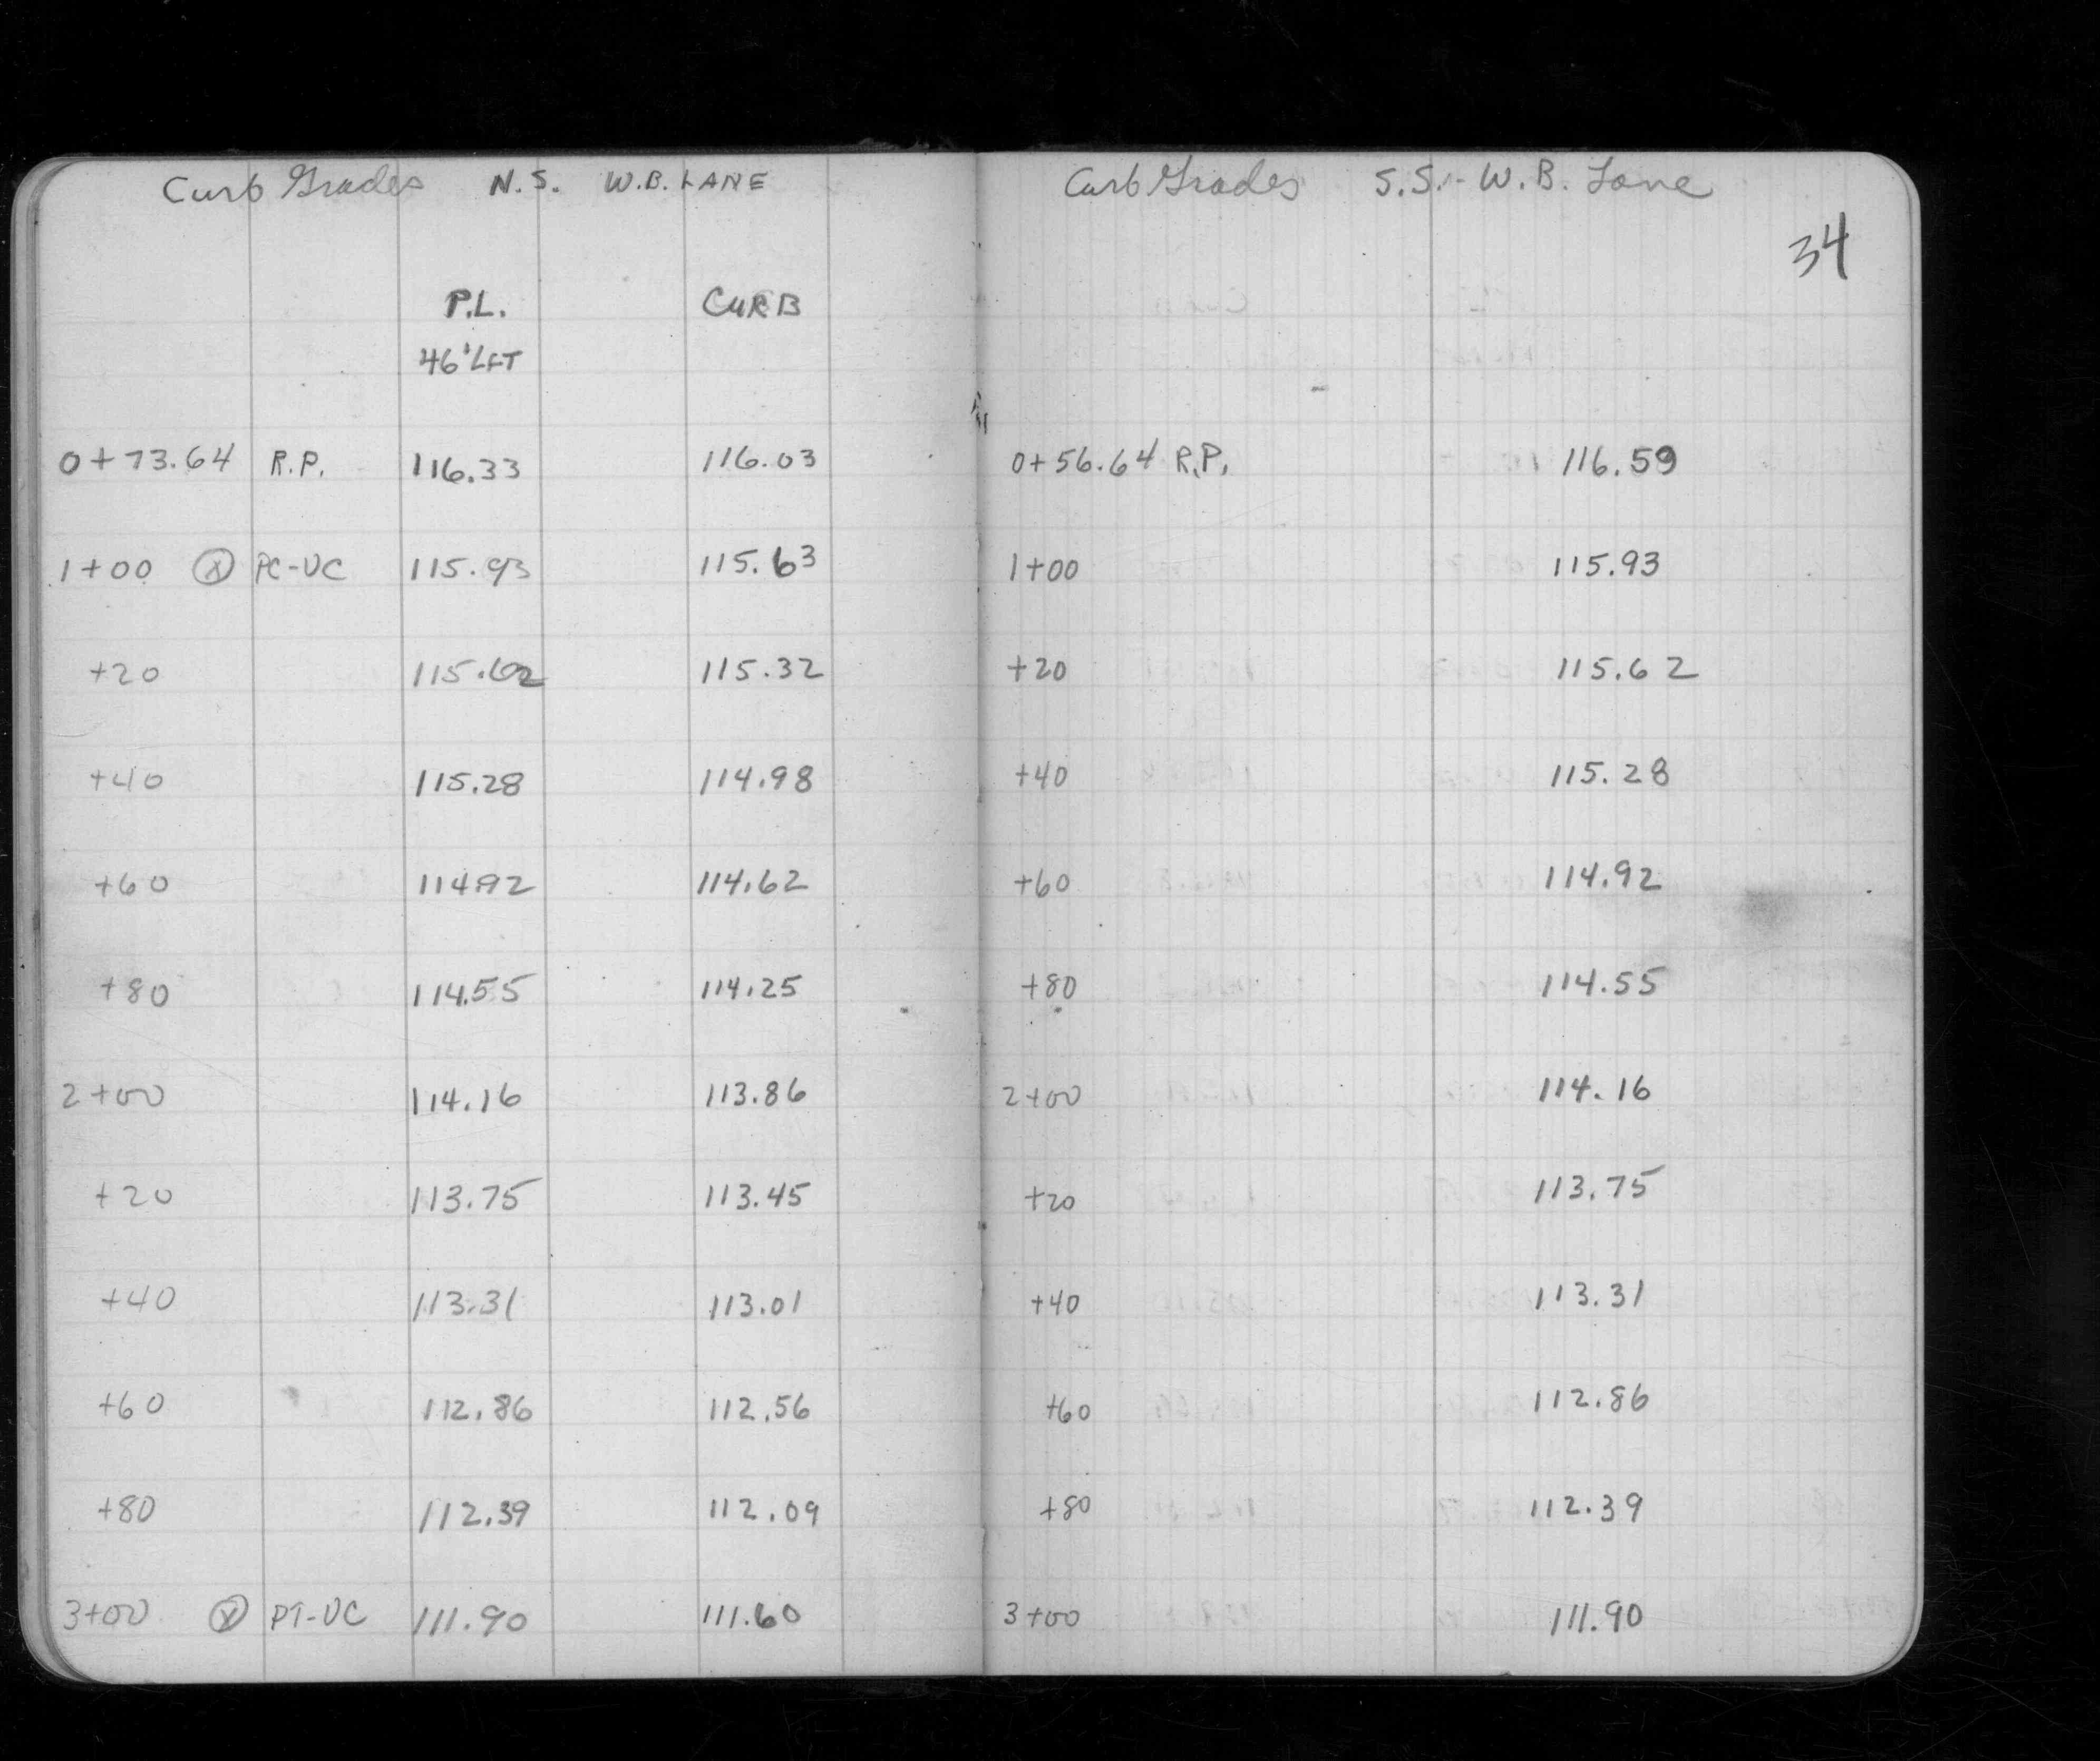 Curb Grades N.S. W.B. LANE
P.L. CURB
46' LFT
0+73.64 R.P. 116.33 116.03
1+00 ⓧ PC-VC 115.93 115.63
+20 115.62 115.32
+40 115.28 114.98
+60 114.92 114.62
+80 114.55 114.25
2+00 114.16 113.86
+20 113.75 113.45
+40 113.31 113.01
+60 112.86 112.56
+80 112.39 112.09
3+00 ⓧ PT-VC 111.90 111.60
Curb Grades S.S. - W.B. Lane
34
0+56.64 R.P. 116.59
1+00 115.93
+20 115.62
+40 115.28
+60 114.92
+80 114.55
2+00 114.16
+20 113.75
+40 113.31
+60 112.86
+80 112.39
3+00 111.90